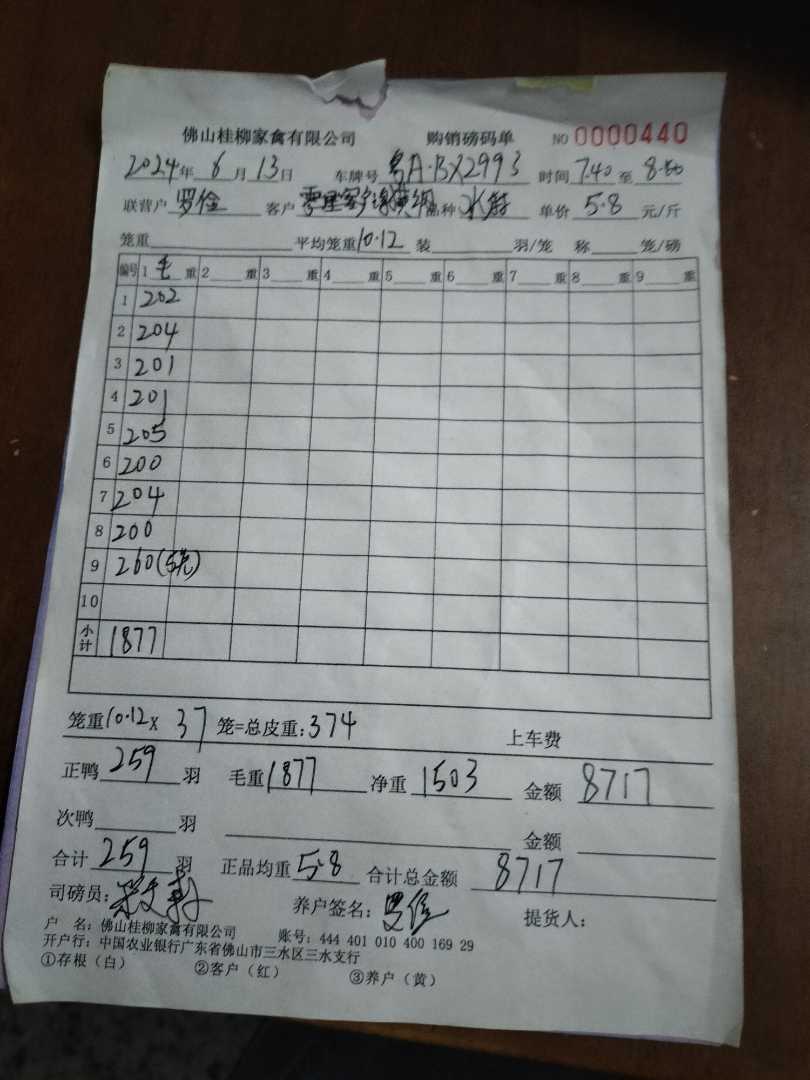 佛山桂柳家禽有限公司 购销磅码单 NO 0000440
2024年 6月13日 车牌号 粤A·BX2993 时间 7.40 至 8.50
联营户 罗佺 客户 品种 水鸭 单价 5.8 元/斤
笼重 平均笼重 10.12 装 羽/笼 称 笼/磅
编号 1 毛 重 2 重 3 重 4 重 5 重 6 重 7 重 8 重 9 重
1 202
2 204
3 201
4 201
5 205
6 200
7 204
8 200
9 260(5笼)
10
小计 1877
笼重 10.12 x 37 笼=总皮重: 374 上车费
正鸭 259 羽 毛重 1877 净重 1503 金额 8717
次鸭 羽 金额
合计 259 羽 正品均重 5.8 合计总金额 8717
司磅员: 养户签名: 提货人:
户 名: 佛山桂柳家禽有限公司 账号: 444 401 010 400 169 29
开户行: 中国农业银行广东省佛山市三水区三水支行
①存根（白） ②客户（红） ③养户（黄）